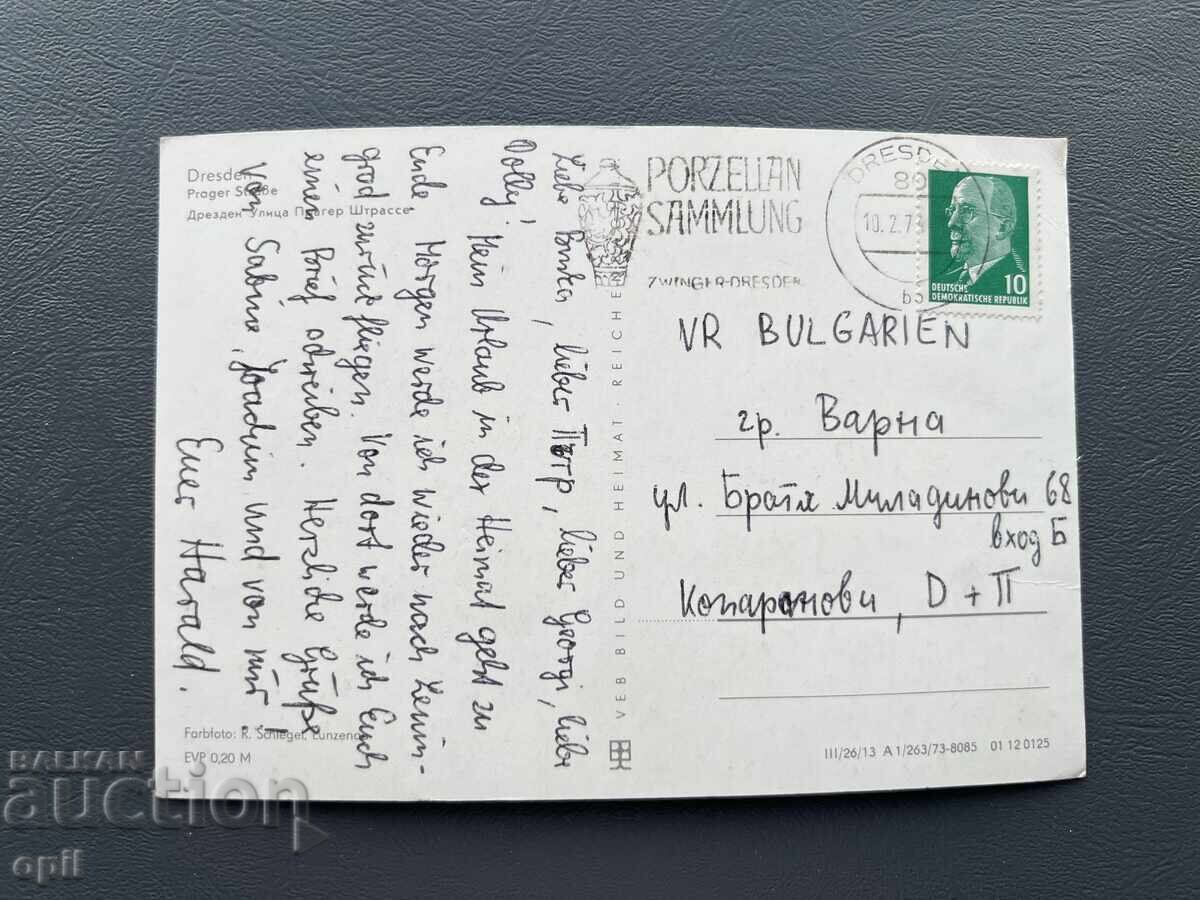 Dresden
Prager Straße
Дрезден Улица Прагер Штрассе
Liebe Binka, lieber Петр, lieber Georgi, liebe
Dolly! Mein Urlaub in der Heimat geht zu
Ende. Morgen werde ich wieder nach Lenin-
grad zurück fliegen. Von dort werde ich Euch
einen Brief schreiben. Herzliche Grüße
von Sabine, Joachim und von mir!
Euer Harald.
Farbfoto: R. Schlegel, Lunzenau
EVP 0,20 M
VEB BILD UND HEIMAT · REICHE
PORZELLAN
SAMMLUNG
ZWINGER-DRESDEN
DRESDEN
10.2.7
10
DEUTSCHE
DEMOKRATISCHE REPUBLIK
VR BULGARIEN
гр. Варна
ул. Братя Миладинови 68
вход Б
Копаранови, D + П
III/26/13 A 1/263/73-8085 01 12 0125
BALKAN
auction
opil